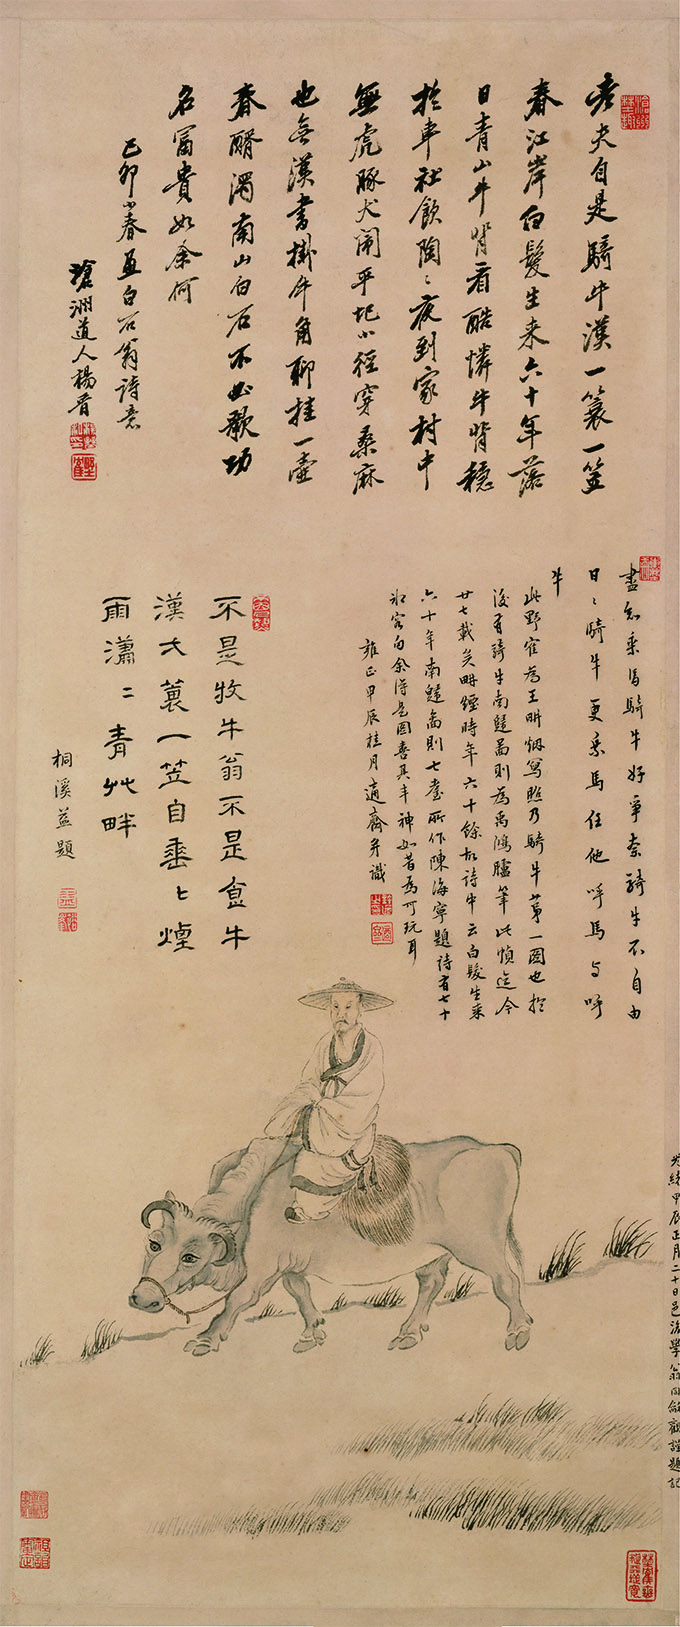 老夫自是騎牛漢一蓑一笠
春江岸白髮生来六十年落
日青山牛背看酷憐牛背穩
於車社飲陶〻夜到家村中
無虎豚犬鬧平圯小徑穿桑麻
也無漢書掛牛角聊挂一壺
春醑濁南山白石不必歌功
名富貴如余何
己卯小春画白石翁詩意
洲道人楊晉
盡知乘馬騎牛好爭奈騎牛不自由
日〻騎牛更乘馬任他呼馬与呼
牛
此野隺為王畊烟寫照乃騎牛第一圖也於
後有騎牛南還啚則為禹鴻臚筆此幀迄今
廿七載矣畊煙時年六十餘故詩中云白髮生来
六十年南還啚則七耋所作陳海寧題詩有七十
客句余得是圖喜其丰神如昔為可玩耳
雍正甲辰桂月適齋并識
不是牧牛翁不是食牛
漢弌蓑一笠自垂〻煙
雨瀟〻青艸畔
桐溪益題
光緒甲辰正月二十日邑後學翁同龢觀謹題記